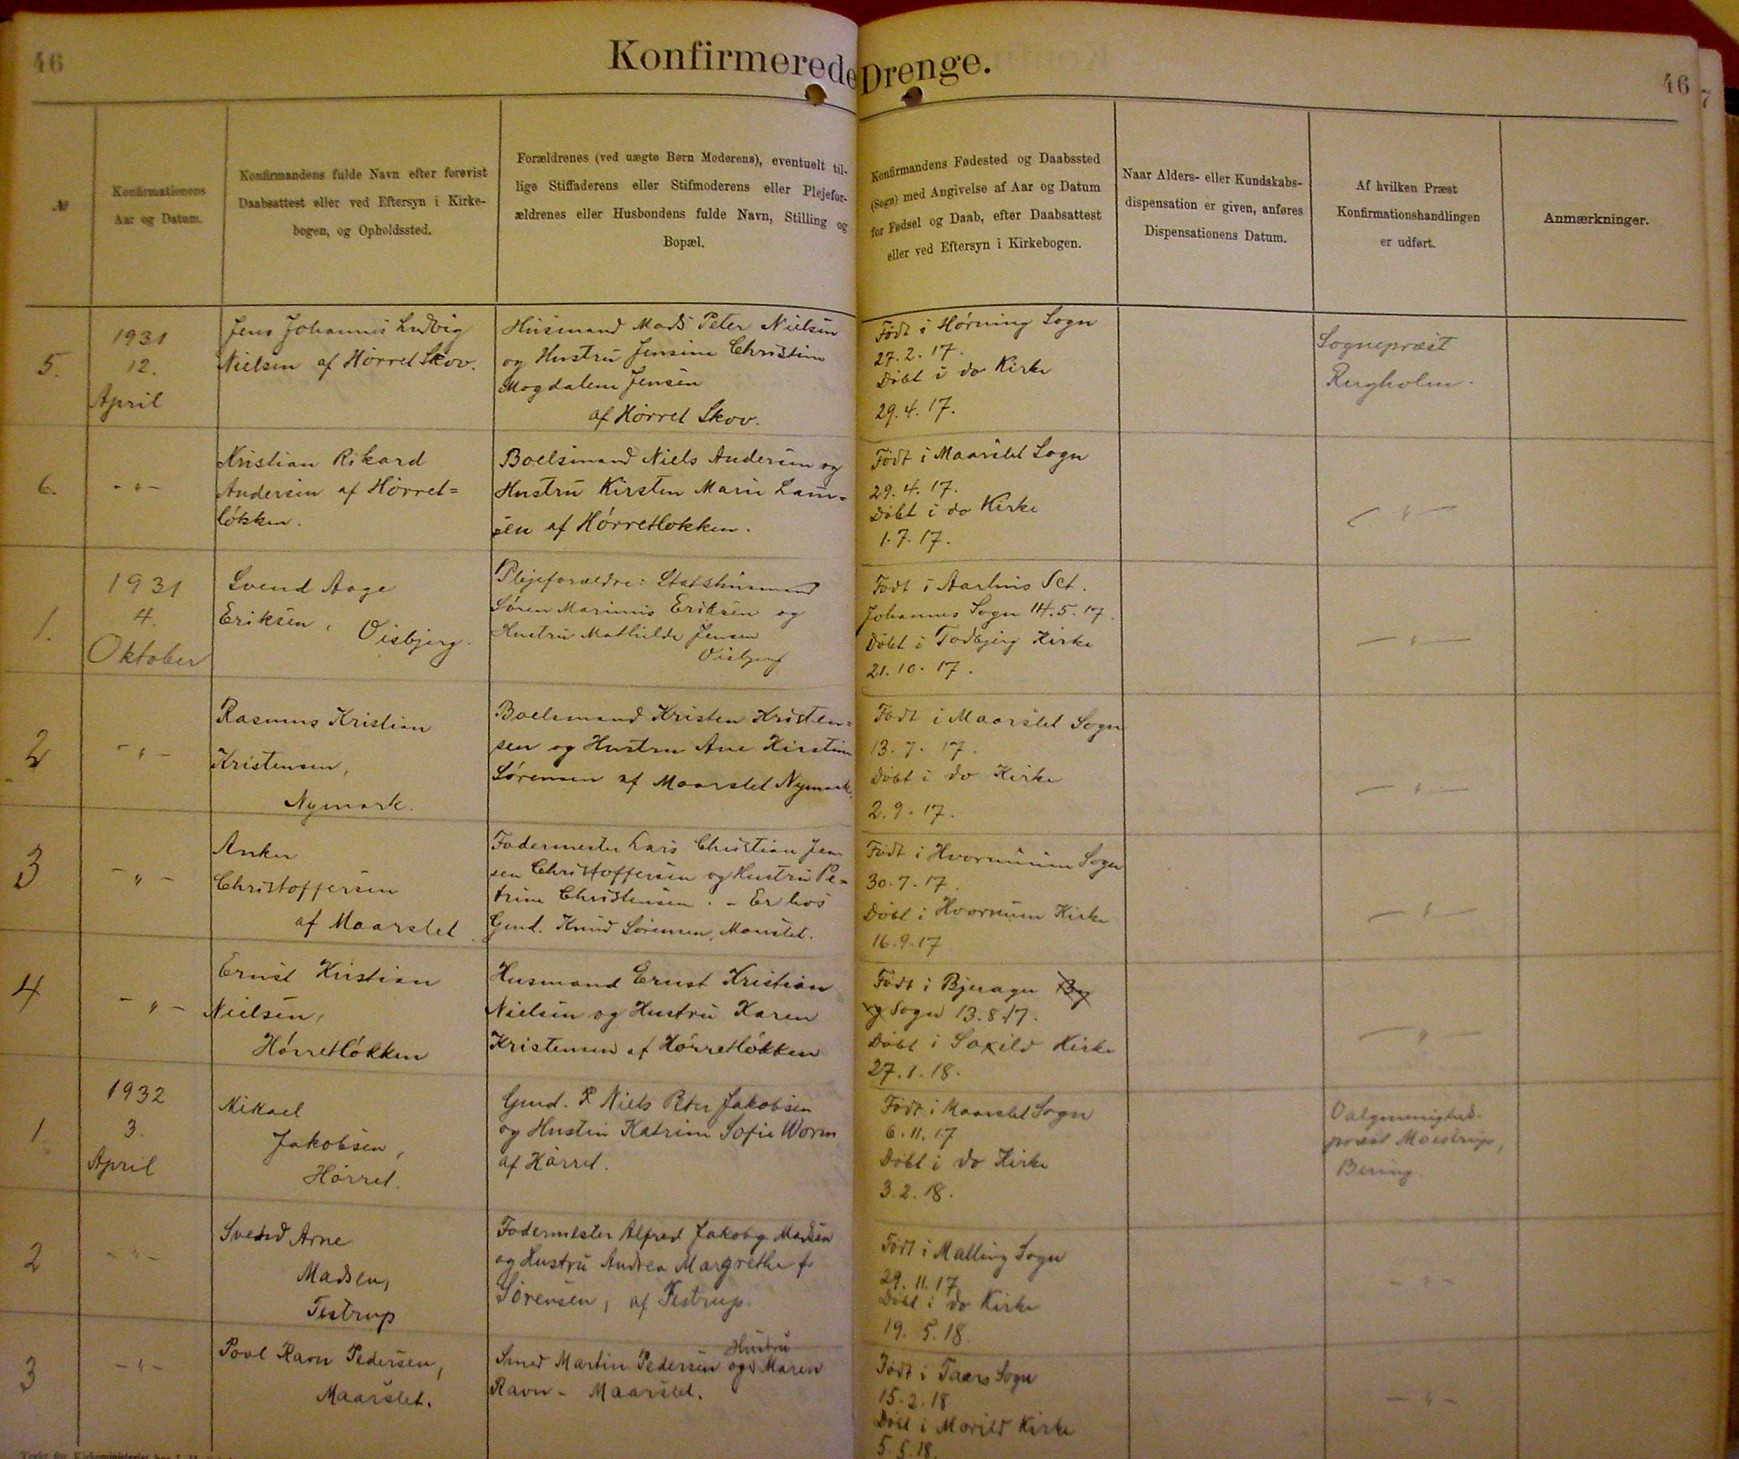 46
Konfirmerede Drenge.
46
7
№
Konfirmationens
Aar og Datum.
Konfirmandens fulde Navn efter forevist
Daabsattest eller ved Eftersyn i Kirke-
bogen, og Opholdssted.
Forældrenes (ved uægte Børn Moderens), eventuelt til-
lige Stiffaderens eller Stifmoderens eller Plejefor-
ældrenes eller Husbondens fulde Navn, Stilling og
Bopæl.
Konfirmandens Fødested og Daabssted
(Sogn) med Angivelse af Aar og Datum
for Fødsel og Daab, efter Daabsattest
eller ved Eftersyn i Kirkebogen.
Naar Alders- eller Kundskabs-
dispensation er given, anføres
Dispensationens Datum.
Af hvilken Præst
Konfirmationshandlingen
er udført.
Anmærkninger.
5.
1931
12.
April
Jens Johannes Ludvig
Nielsen af Hørret Skov.
Husmand Mads Peter Nielsen
og Hustru Jensine Christine
Magdalene Jensen
af Hørret Skov.
Født i Hørning Sogn
27.2.17.
Døbt i do Kirke
29.4.17.
Sognepræst
Rugholm.
6.
-"-
Kristian Rikard
Andersen af Hørret=
løkken.
Boelsmand Niels Andersen og
Hustru Kirsten Marie Laur=
sen af Hørretløkken.
Født i Maarslet Sogn
29.4.17.
Døbt i do Kirke
1.7.17.
-"-
1.
1931
4.
Oktober
Svend Aage
Eriksen, Visbjerg.
Plejeforældre: Statshusmand
Søren Marinus Eriksen og
Hustru Mathilde Jensen
Visbjerg
Født i Aarhus Sct.
Johannes Sogn 14.5.17.
Døbt i Todbjerg Kirke
21.10.17.
-"-
2
-"-
Rasmus Kristian
Kristensen,
Nymark.
Boelsmand Kristen Kristen=
sen og Hustru Ane Kirstine
Sørensen af Maarslet Nymark.
Født i Maarslet Sogn
13.7.17.
Døbt i do Kirke
2.9.17.
-"-
3
-"-
Anker
Christoffersen
af Maarslet
Fodermester Lars Christian Jen
sen Christoffersen og Hustru Pe=
trine Christensen. - Er hos
Gmd. Knud Sørensen, Maarslet.
Født i Hvornum Sogn
30.7.17.
Døbt i Hvornum Kirke
16.9.17
-"-
4
-"-
Ernst Kristian
Nielsen,
Hørretløkken
Husmand Ernst Kristian
Nielsen og Hustru Karen
Kristensen af Hørretløkken
Født i Bjerager By
og Sogn 13.8.17.
Døbt i Saxild Kirke
27.1.18.
-"-
1
1932
3.
April
Mikael
Jakobsen,
Hørret.
Gmd. P Niels Peter Jakobsen
og Hustru Katrine Sofie Worm
af Hørret.
Født i Maarslet Sogn
6.11.17
Døbt i do Kirke
3.2.18.
Valgmenigheds-
præst Moestrup,
Bering
2
-"-
Svend Arne
Madsen,
Testrup
Fodermester Alfred Jakob Madsen
og Hustru Andrea Margrethe f.
Sørensen, af Testrup.
Født i Malling Sogn
29.11.17
Døbt i do Kirke
19.5.18
-"-
3
-"-
Povl Ravn Pedersen,
Maarslet.
Hustru
Smed Martin Pedersen og Maren
Ravn - Maarslet.
Født i Taars Sogn
15.2.18
Døbt i Morild Kirke
5.5.18.
-"-